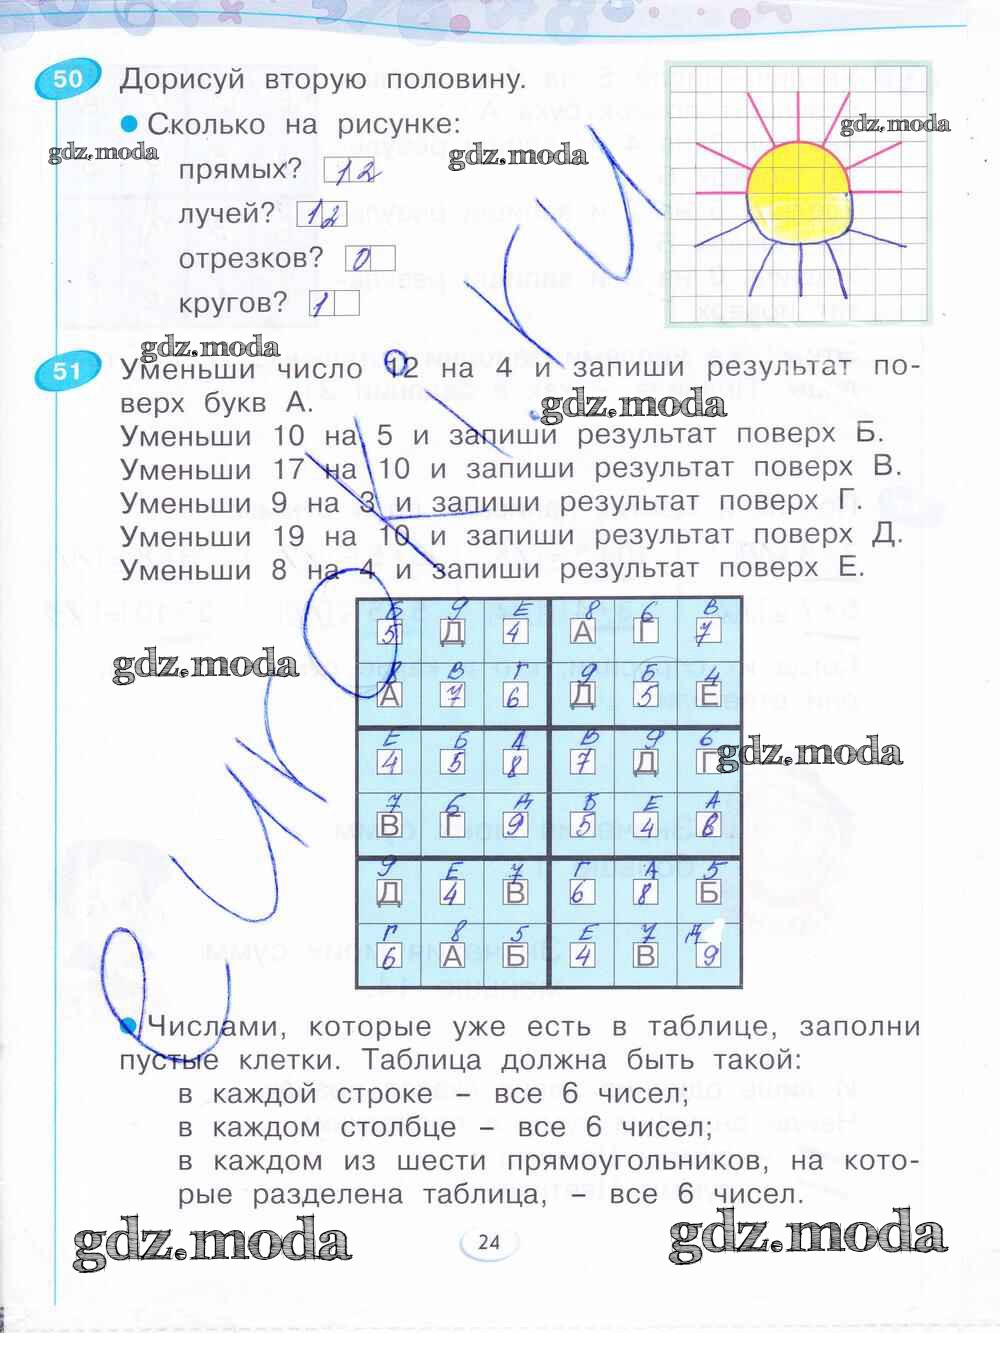 50 Дорисуй вторую половину.
Сколько на рисунке:
gdz.moda gdz.moda gdz.moda
прямых? 12
лучей? 12
отрезков? 0
кругов? 1
gdz.moda
51 Уменьши число 12 на 4 и запиши результат по-
верх букв А.
gdz.moda
Уменьши 10 на 5 и запиши результат поверх Б.
Уменьши 17 на 10 и запиши результат поверх В.
Уменьши 9 на 3 и запиши результат поверх Г.
Уменьши 19 на 10 и запиши результат поверх Д.
Уменьши 8 на 4 и запиши результат поверх Е.
Б 9 Е 8 6 В
5 Д 4 А Г 7
gdz.moda
8 В Г 9 Б 4
А 7 6 Д 5 Е
Е Б А В 9 6
4 5 8 7 Д Г
gdz.moda
7 6 Д Б Е А
В Г 9 5 4 8
9 Е 7 Г А 5
Д 4 В 6 8 Б
Г 8 5 Е 7 Д
6 А Б 4 В 9
Числами, которые уже есть в таблице, заполни
пустые клетки. Таблица должна быть такой:
в каждой строке – все 6 чисел;
в каждом столбце – все 6 чисел;
в каждом из шести прямоугольников, на кото-
рые разделена таблица, – все 6 чисел.
gdz.moda 24 gdz.moda